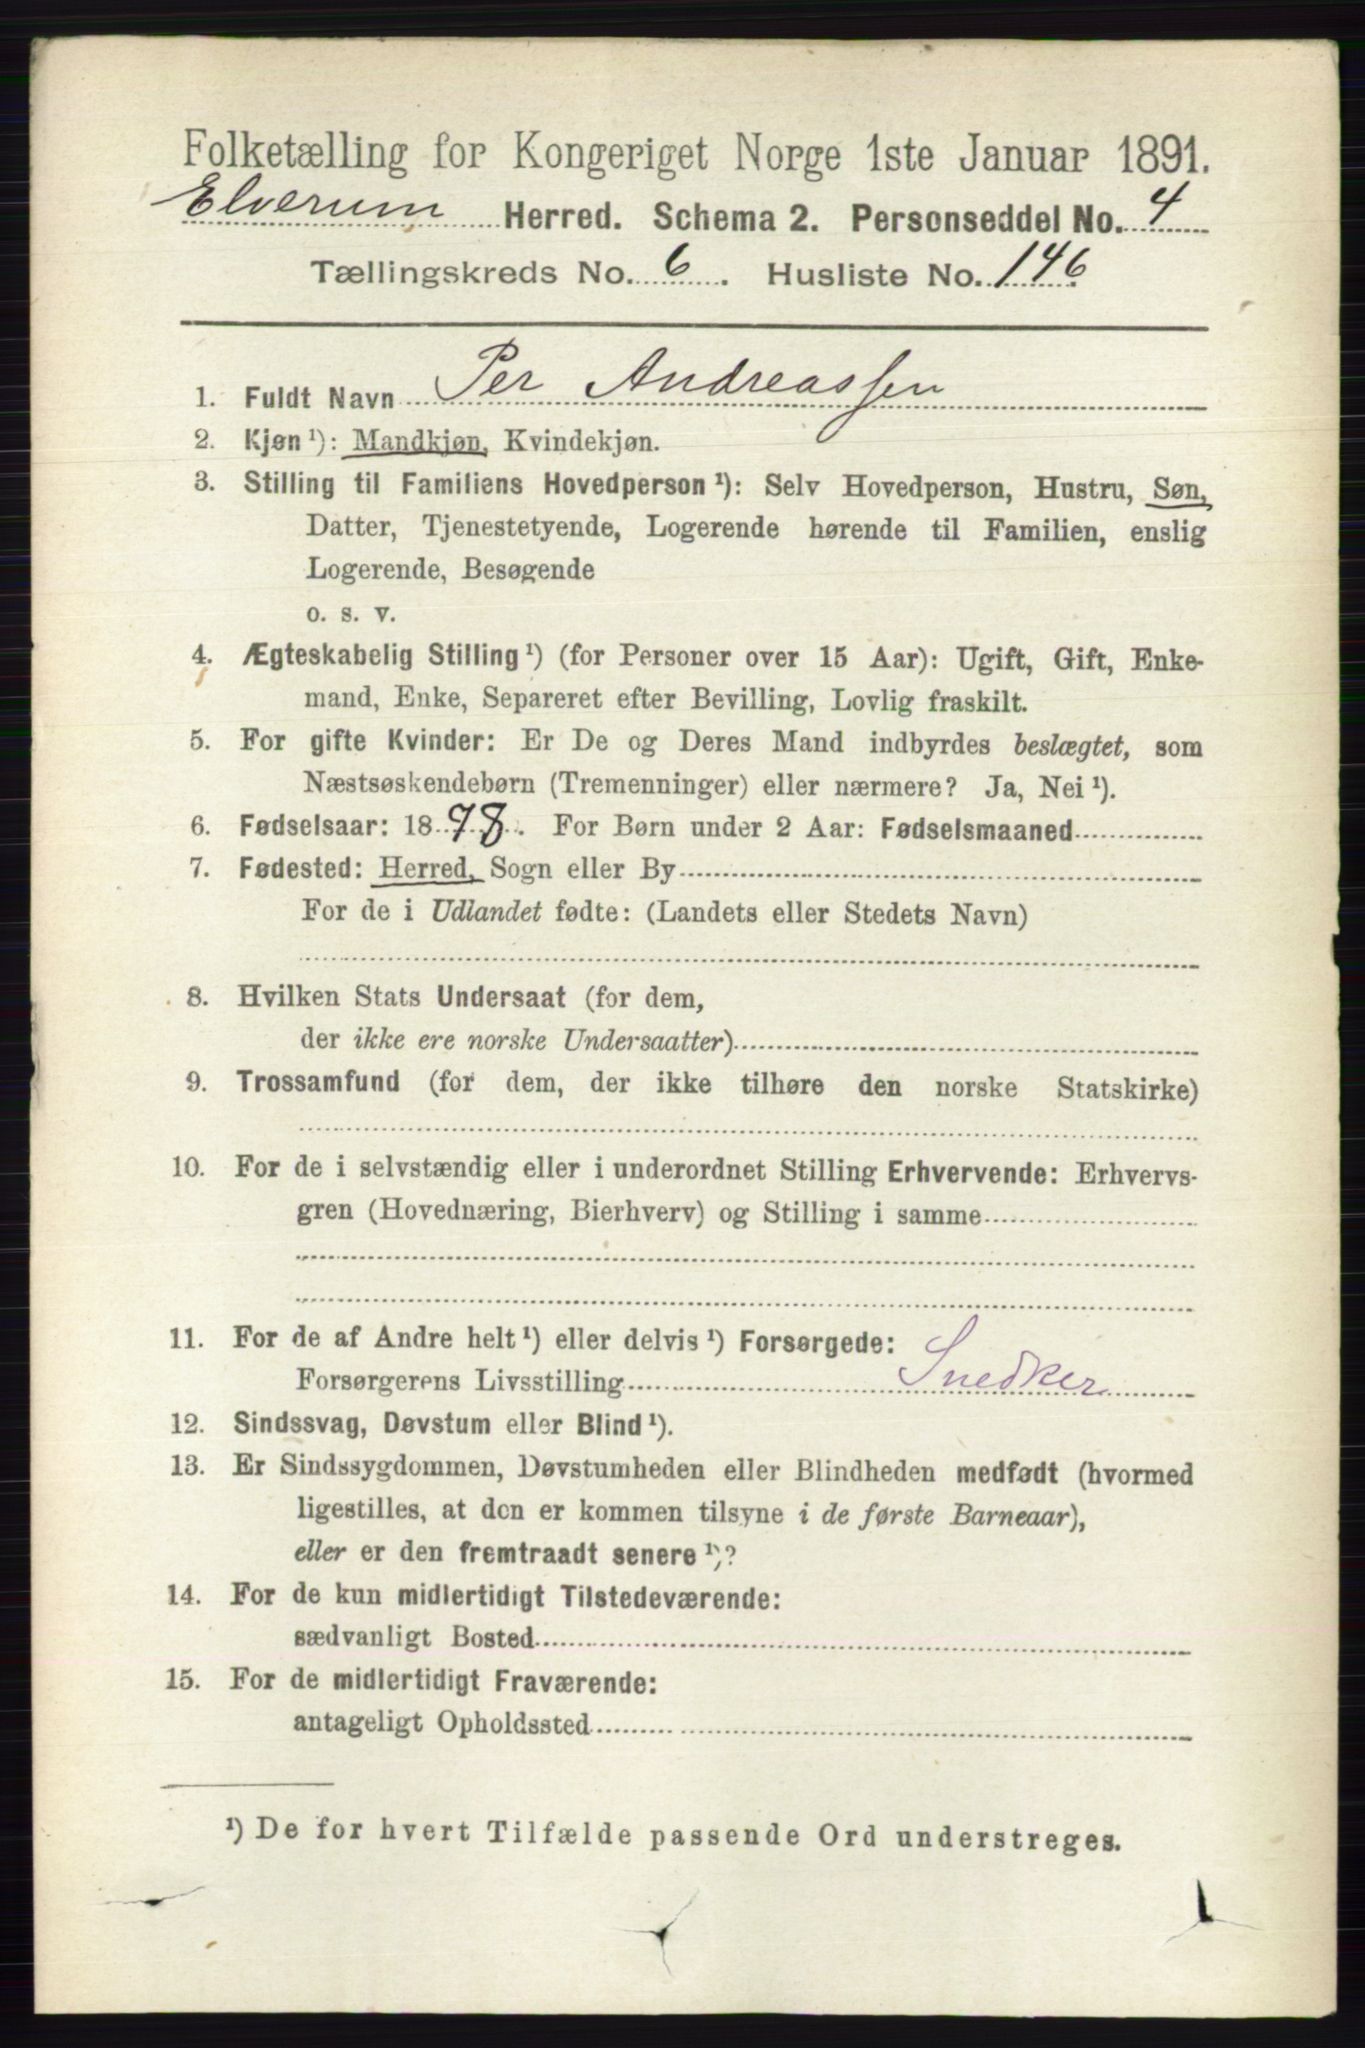 Folketælling for Kongeriget Norge 1ste Januar 1891.
Elverum Herred. Schema 2. Personseddel No. 4
Tællingskreds No. 6. Husliste No. 146
1. Fuldt Navn Per Andreassen
2. Kjøn ¹): Mandkjøn, Kvindekjøn.
3. Stilling til Familiens Hovedperson ¹): Selv Hovedperson, Hustru, Søn,
Datter, Tjenestetyende, Logerende hørende til Familien, enslig
Logerende, Besøgende
o. s. v.
4. Ægteskabelig Stilling ¹) (for Personer over 15 Aar): Ugift, Gift, Enke-
mand, Enke, Separeret efter Bevilling, Lovlig fraskilt.
5. For gifte Kvinder: Er De og Deres Mand indbyrdes beslægtet, som
Næstsøskendebørn (Tremenninger) eller nærmere? Ja, Nei ¹).
6. Fødselsaar: 1878. For Børn under 2 Aar: Fødselsmaaned
7. Fødested: Herred, Sogn eller By
For de i Udlandet fødte: (Landets eller Stedets Navn)
8. Hvilken Stats Undersaat (for dem,
der ikke ere norske Undersaatter)
9. Trossamfund (for dem, der ikke tilhøre den norske Statskirke)
10. For de i selvstændig eller i underordnet Stilling Erhvervende: Erhvervs-
gren (Hovednæring, Bierhverv) og Stilling i samme
11. For de af Andre helt ¹) eller delvis ¹) Forsørgede:
Forsørgerens Livsstilling Snedker
12. Sindssvag, Døvstum eller Blind ¹).
13. Er Sindssygdommen, Døvstumheden eller Blindheden medfødt (hvormed
ligestilles, at den er kommen tilsyne i de første Barneaar),
eller er den fremtraadt senere ¹)?
14. For de kun midlertidigt Tilstedeværende:
sædvanligt Bosted
15. For de midlertidigt Fraværende:
antageligt Opholdssted
¹) De for hvert Tilfælde passende Ord understreges.